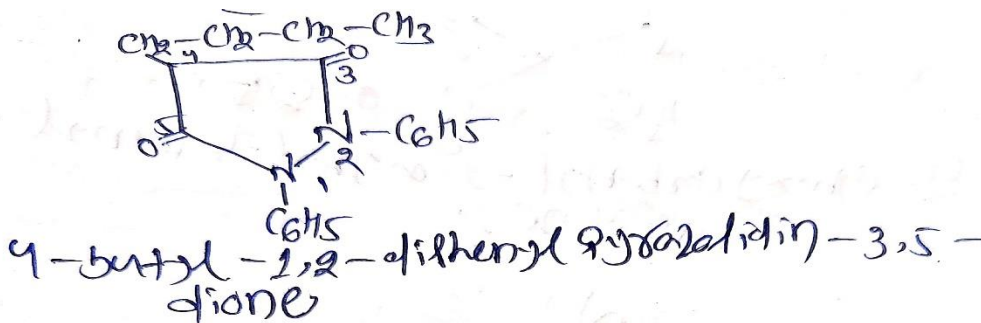 CH2-CH2-CH2-CH3
4
O
3
5
O
N-C6H5
2
N
1
C6H5
4-butyl-1,2-diphenyl pyrazolidin-3,5-
dione